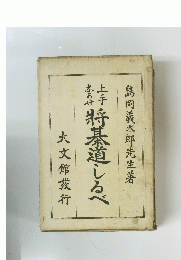 島岡義太郎先生著
上手
将棊道しるべ
大文館發行